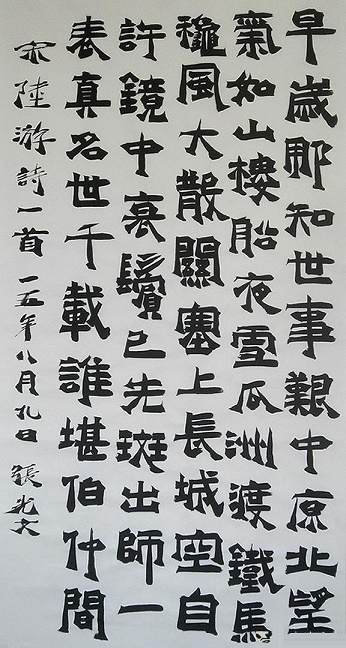 早歲那知世事艱中原北望
氣如山樓船夜雪瓜洲渡鐵馬
穐風大散關塞上長城空自
許鏡中衰鬢已先斑出師一
表真名世千載誰堪伯仲間
宋陸游詩一首一五年八月九日張文